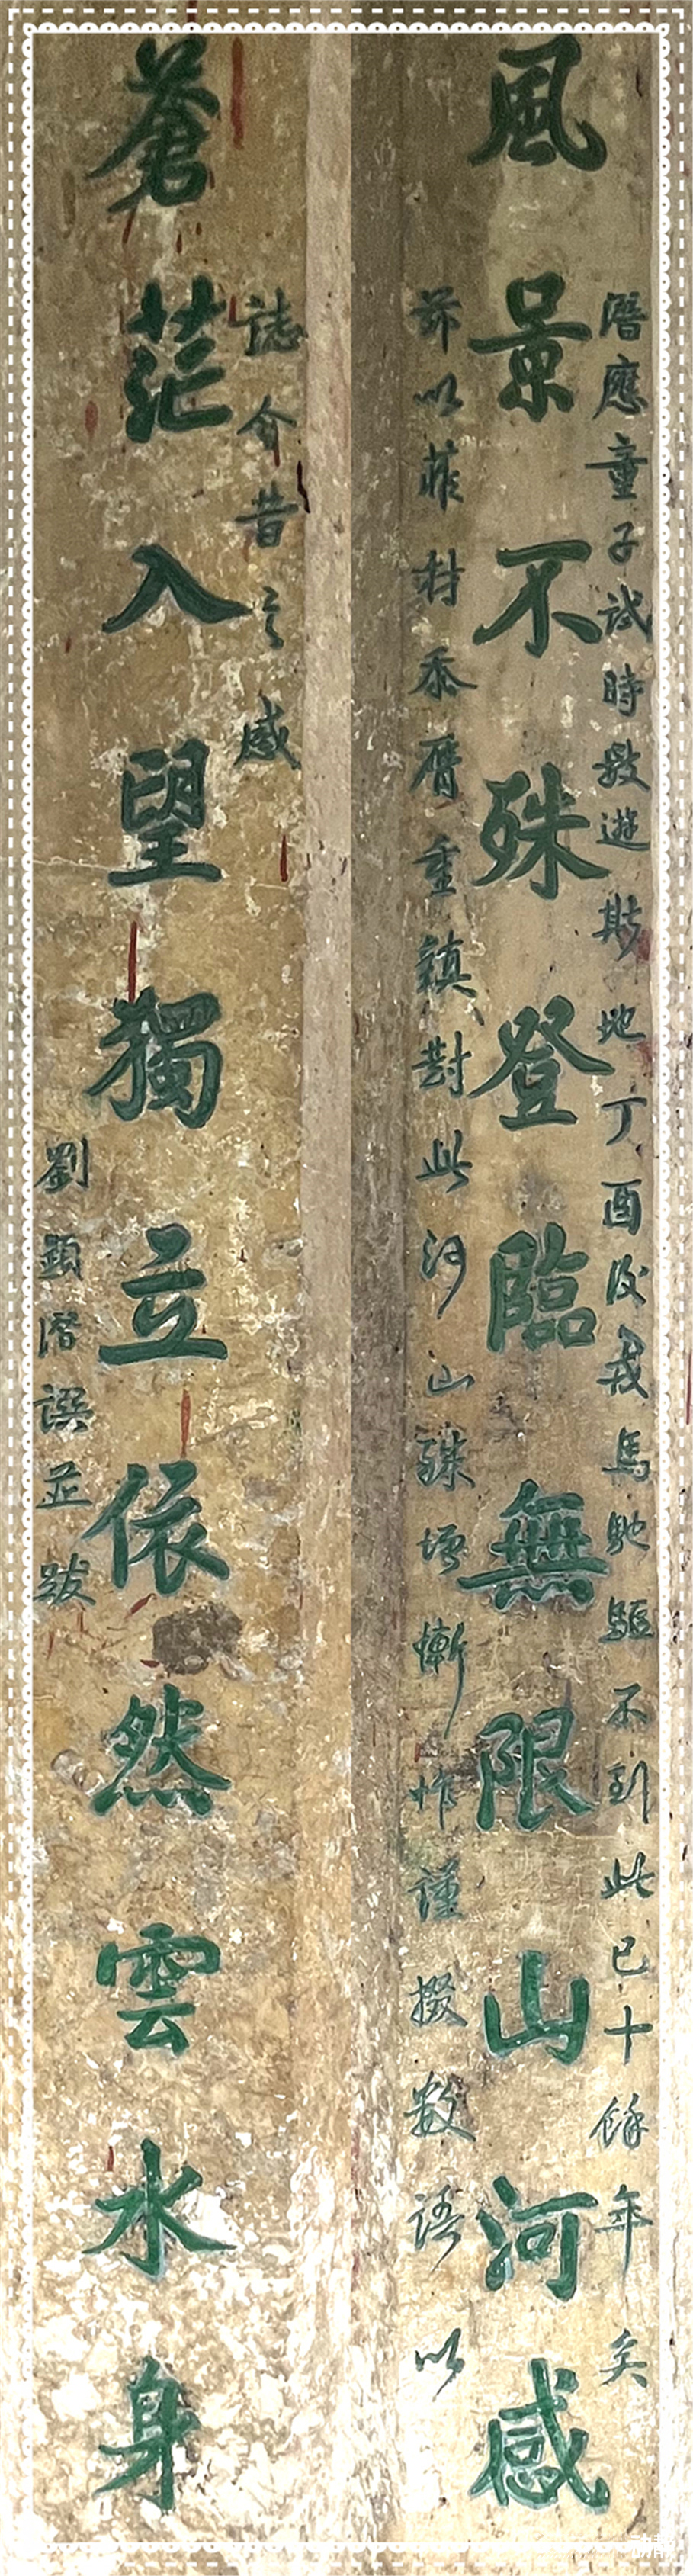 風景不殊登臨無限山河感
潛應童子試時數遊斯地丁酉後戎馬馳驅不到此已十餘年矣
茲以菲材忝膺重鎮對此河山殊增慚怍謹掇數語以
誌今昔之感
蒼茫入望獨立依然雲水身
劉顯潛譔並跋